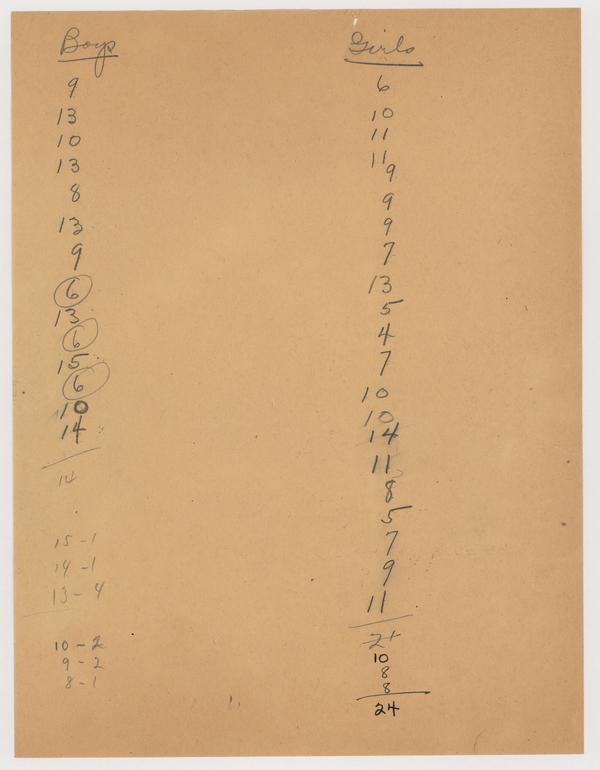 Boys
9
13
10
13
8
13
9
6
13
6
15
6
10
14
14
15-1
14-1
13-4
10-2
9-2
8-1
Girls
6
10
11
11
9
9
9
7
13
5
4
7
10
10
14
11
8
5
7
9
11
21
10
8
8
24